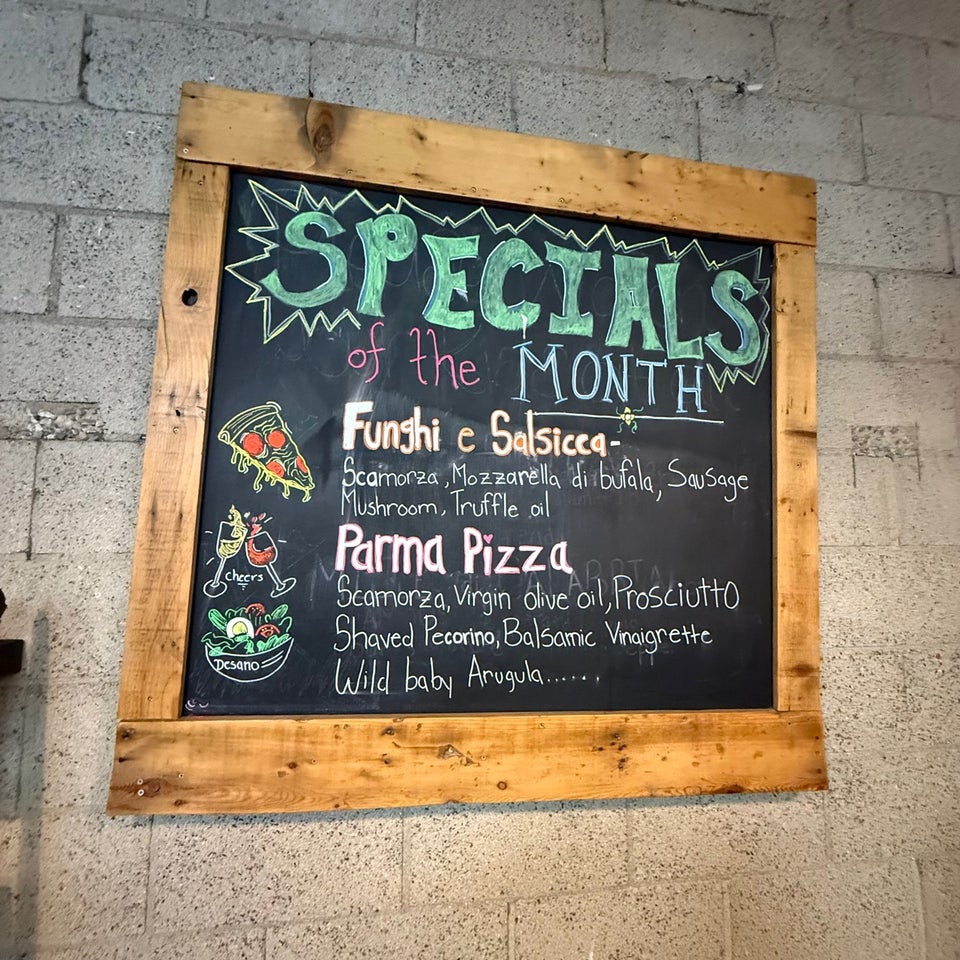 SPECIALS
of the MONTH
Funghi e Salsicca-
Scamorza, Mozzarella di bufala, Sausage
Mushroom, Truffle oil
Parma Pizza
Scamorza, Virgin olive oil, Prosciutto
Shaved Pecorino, Balsamic Vinaigrette
Wild baby Arugula......
cheers
Desano